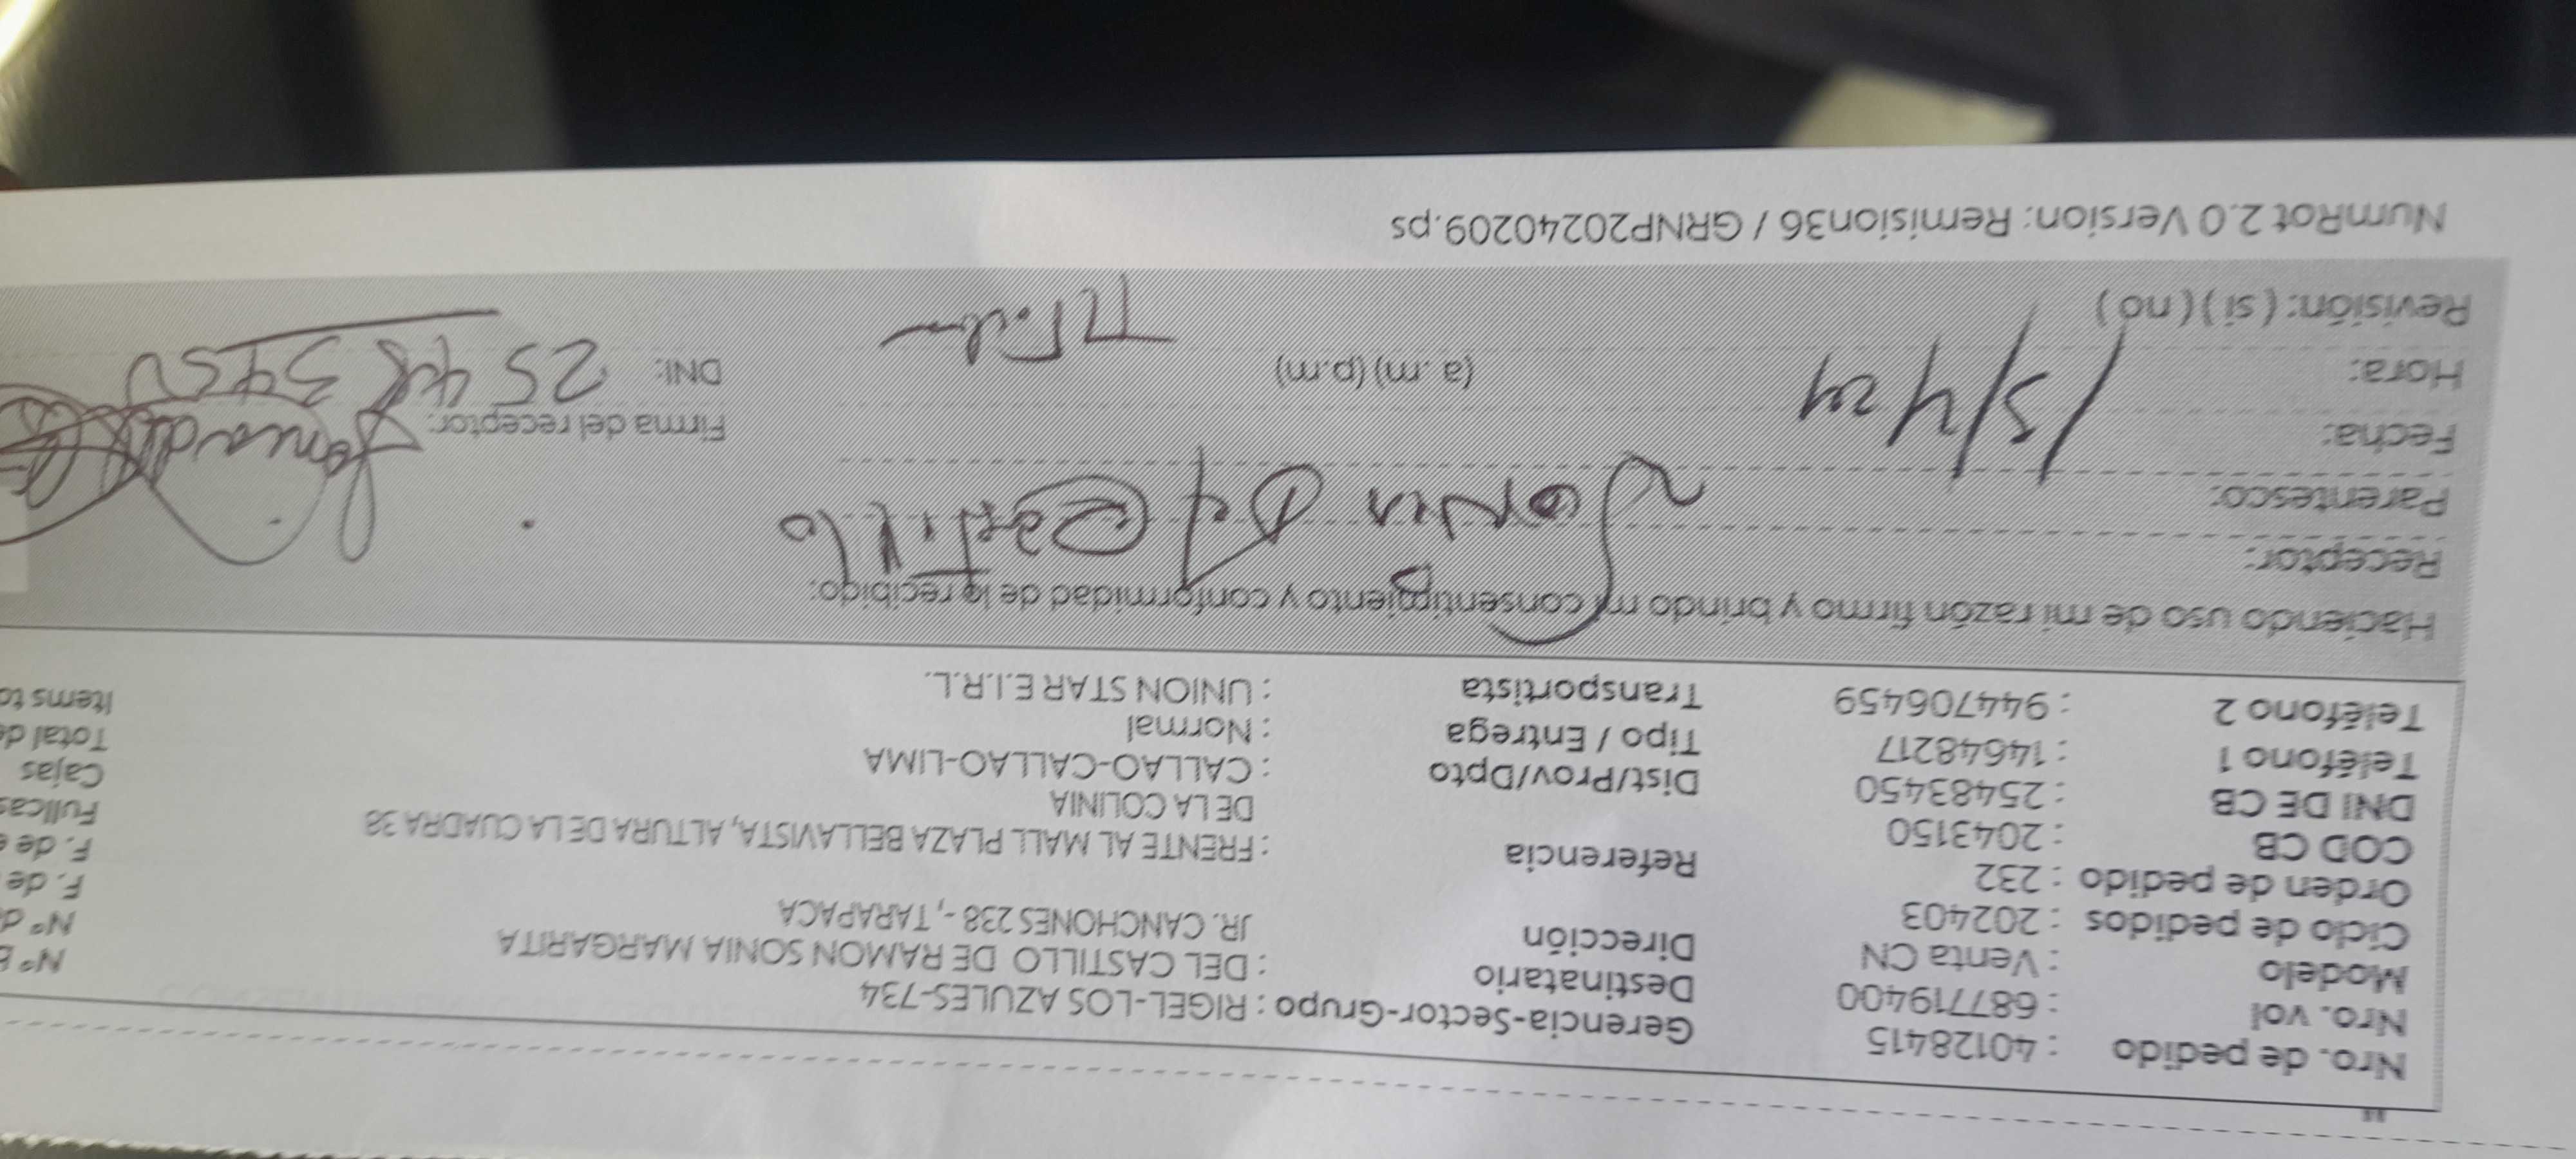 Nro. de pedido : 40128415
Nro. vol : 687719400
Modelo : Venta CN
Ciclo de pedidos : 202403
Orden de pedido : 232
COD CB : 2043150
DNI DE CB : 25483450
Teléfono 1 : 14648217
Teléfono 2 : 944706459
Gerencia-Sector-Grupo : RIGEL-LOS AZULES-734
Destinatario : DEL CASTILLO DE RAMON SONIA MARGARITA
Dirección JR. CANCHONES 238 -, TARAPACA
Referencia : FRENTE AL MALL PLAZA BELLAVISTA, ALTURA DE LA CUADRA 38
DE LA COLINIA
Dist/Prov/Dpto : CALLAO-CALLAO-LIMA
Tipo / Entrega : Normal
Transportista : UNION STAR E.I.R.L.
Nº
Nº
F. de
F. de
Cajas
Total
Items
Haciendo uso de mi razón firmo y brindo mi consentimiento y conformidad de lo recibido:
Receptor: Sonia Del Castillo
Parentesco:
Fecha: 15/4/24
Firma del receptor:
Hora: (a .m) (p.m)
DNI: 25483450
Revisión: ( si ) ( no )
NumRot 2.0 Version: Remision36 / GRNP20240209.ps